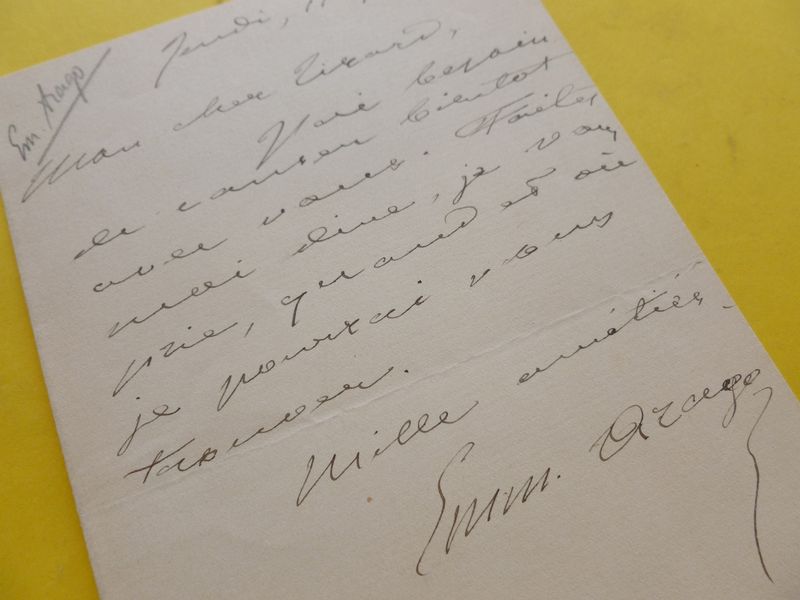 Em. Arago
Jeudi,
Mon cher Tirard,
J'ai besoin
de causer bientot
avec vous. Faites
moi dire, je vous
prie, quand et où
je pourrai vous
trouver.
Mille amitiés.
Emm. Arago